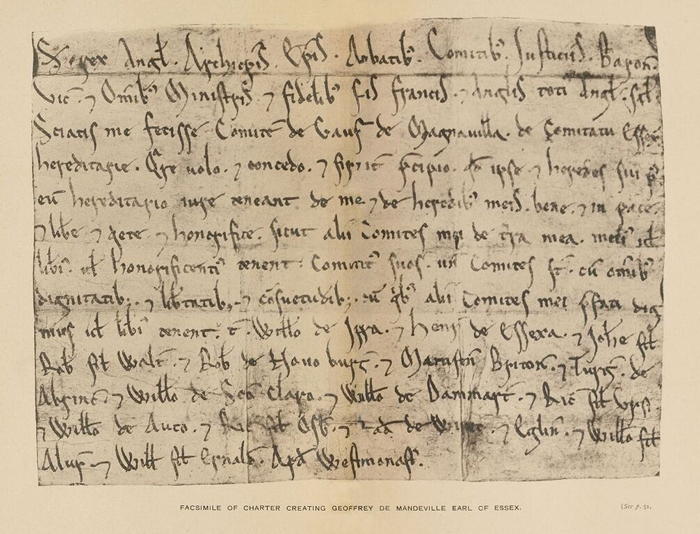 S. rex Angl. Archiepis. Epis. Abbatib'. Comitib'. Justiciis. Baron.
Vic. ⁊ Omib' Ministris ⁊ fidelib' suis francis. ⁊ Anglis toti Angl. sal.
Sciatis me fecisse Comite de Gauf de Magnavilla. de Comitatu Essex
hereditarie. Qre volo. ⁊ concedo. ⁊ firmit pcipio. qd ipse ⁊ heredes sui p
eu hereditario iure teneant de me ⁊ de heredib' meis. bene. ⁊ in pace.
⁊ libe ⁊ qete ⁊ honorifice. sicut alii Comites mei de tra mea. meli' ul
libi'. ul honorificenti' tenent Comitat' suos. un Comites st. cu omib'
dignitatib; ⁊ libtatib; ⁊ csuetudib;. cu qb' alii Comites mei pfati dig
nius ul libi' tenent. T. Willo de Ipra. ⁊ Henr de Essexa. ⁊ Johe fil
Rob fil Walt. ⁊ Rob de Novo burg. ⁊ Mainfen Briton. ⁊ Turg. de
Abrinc ⁊ Willo de Sco Claro. ⁊ Willo de Dammart. ⁊ Ric fil Ursi
⁊ Willo de Auco. ⁊ Ric fil Osb. ⁊ Rad de ⁊ Eglin. ⁊ Willo fil
Alur ⁊ Will fil Ernald. Apd Westmonast.
FACSIMILE OF CHARTER CREATING GEOFFREY DE MANDEVILLE EARL OF ESSEX.
[See p. 51.